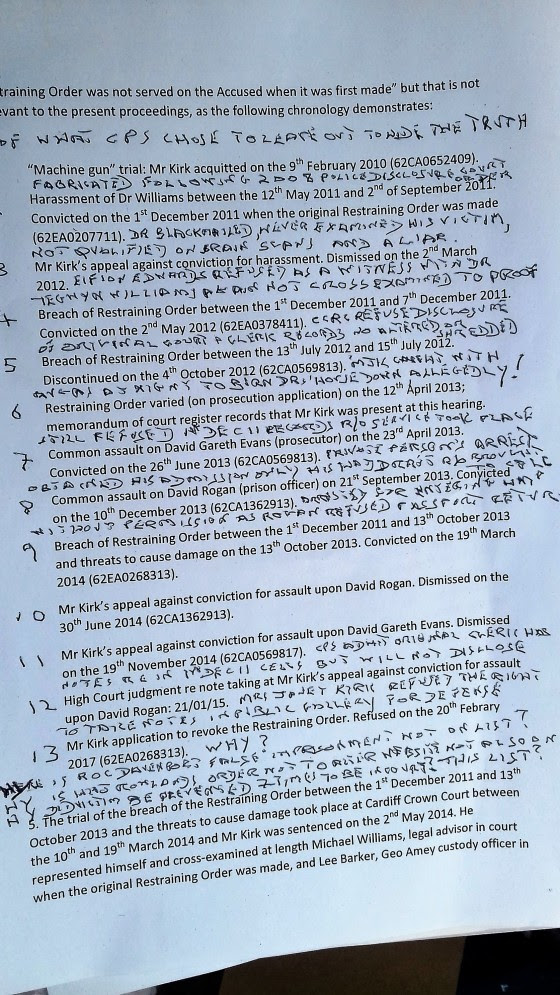 training Order was not served on the Accused when it was first made" but that is not
evant to the present proceedings, as the following chronology demonstrates:
OF WHAT CPS CHOSE TO LEAVE OUT TO HIDE THE TRUTH
"Machine gun" trial: Mr Kirk acquitted on the 9th February 2010 (62CA0652409).
FABRICATED FOLLOWING 2008 POLICE DISCLOSURE COURT
Harassment of Dr Williams between the 12th May 2011 and 2nd of September 2011.
Convicted on the 1st December 2011 when the original Restraining Order was made
(62EA0207711). DR BLACKMAILED, NEVER EXAMINED HIS VICTIM,
NOT QUALIFIED ON BRAIN SCANS AND A LIAR.
3 Mr Kirk's appeal against conviction for harassment. Dismissed on the 2nd March
2012. REFUSED AS A WITNESS DR
WILLIAMS NOT CROSS EXAMINED TO PROOF
4 Breach of Restraining Order between the 1st December 2011 and 7th December 2011.
Convicted on the 2nd May 2012 (62EA0378411). CCRC REFUSE DISCLOSURE
OF ORIGINAL COURT CLERK RECORDS NO ALTERED OR SHREDDED
5 Breach of Restraining Order between the 13th July 2012 and 15th July 2012.
Discontinued on the 4th October 2012 (62CA0569813). MJK CAUGHT WITH
TO BURN DRS HOUSE DOWN ALLEGEDLY!
6 Restraining Order varied (on prosecution application) on the 12th April 2013;
memorandum of court register records that Mr Kirk was present at this hearing.
STILL REFUSED RECORDS R/O SERVICE TOOK PLACE
7 Common assault on David Gareth Evans (prosecutor) on the 23rd April 2013.
Convicted on the 26th June 2013 (62CA0569813). PRIVATE PERSON'S ARREST
OBTAINED HIS ADMISSION ONLY HIS
8 Common assault on David Rogan (prison officer) on 21st September 2013. Convicted
on the 10th December 2013 (62CA1362913). FOR
WITHOUT PERMISSION AS ROGAN REFUSED PASSPORT RETURN
9 Breach of Restraining Order between the 1st December 2011 and 13th October 2013
and threats to cause damage on the 13th October 2013. Convicted on the 19th March
2014 (62EA0268313).
10 Mr Kirk's appeal against conviction for assault upon David Rogan. Dismissed on the
30th June 2014 (62CA1362913).
11 Mr Kirk's appeal against conviction for assault upon David Gareth Evans. Dismissed
on the 19th November 2014 (62CA0569817). CPS ADMIT ORIGINAL CLERK HAS
NOTES RE 1ST DEC 11 CELLS BUT WILL NOT DISCLOSE
12 High Court judgment re note taking at Mr Kirk's appeal against conviction for assault
upon David Rogan: 21/01/15. MRS JANET KIRK REFUSED THE RIGHT
TO TAKE NOTES IN PUBLIC GALLERY FOR DEFENSE
13 Mr Kirk application to revoke the Restraining Order. Refused on the 20th Febrary
2017 (62EA0268313). WHY?
WHERE IS ROC DAVENPORT FALSE IMPRISONMENT NOT ON LIST?
WHY IS ORDER NOT TO ALTER WEBSITE NOT ALSO ON
WHY DID VICTIM BE PREVENTED TIMES TO BE IN COURT? THIS LIST?
5. The trial of the breach of the Restraining Order between the 1st December 2011 and 13th
October 2013 and the threats to cause damage took place at Cardiff Crown Court between
the 10th and 19th March 2014 and Mr Kirk was sentenced on the 2nd May 2014. He
represented himself and cross-examined at length Michael Williams, legal advisor in court
when the original Restraining Order was made, and Lee Barker, Geo Amey custody officer in